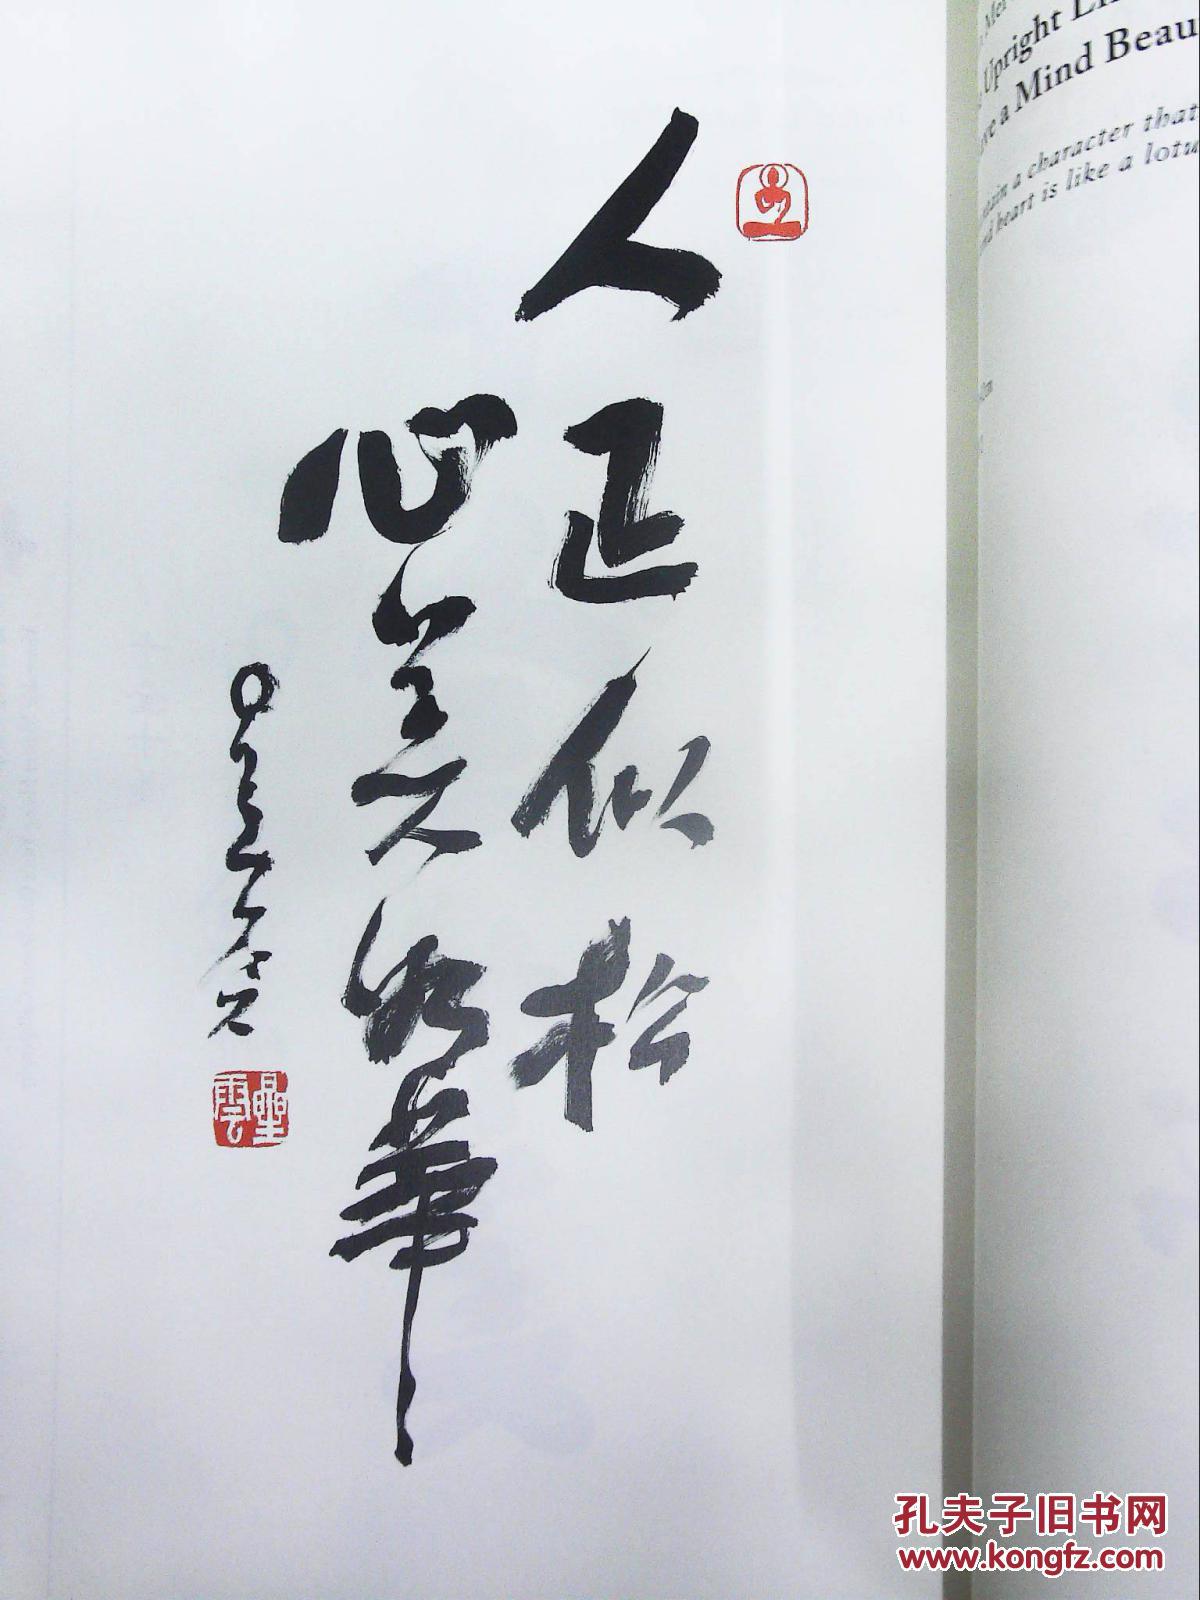 人正似松
心美如華
星雲
星雲
Upright
a Mind Beau
a character that
heart is like a lotu
孔夫子旧书网
www.kongfz.com